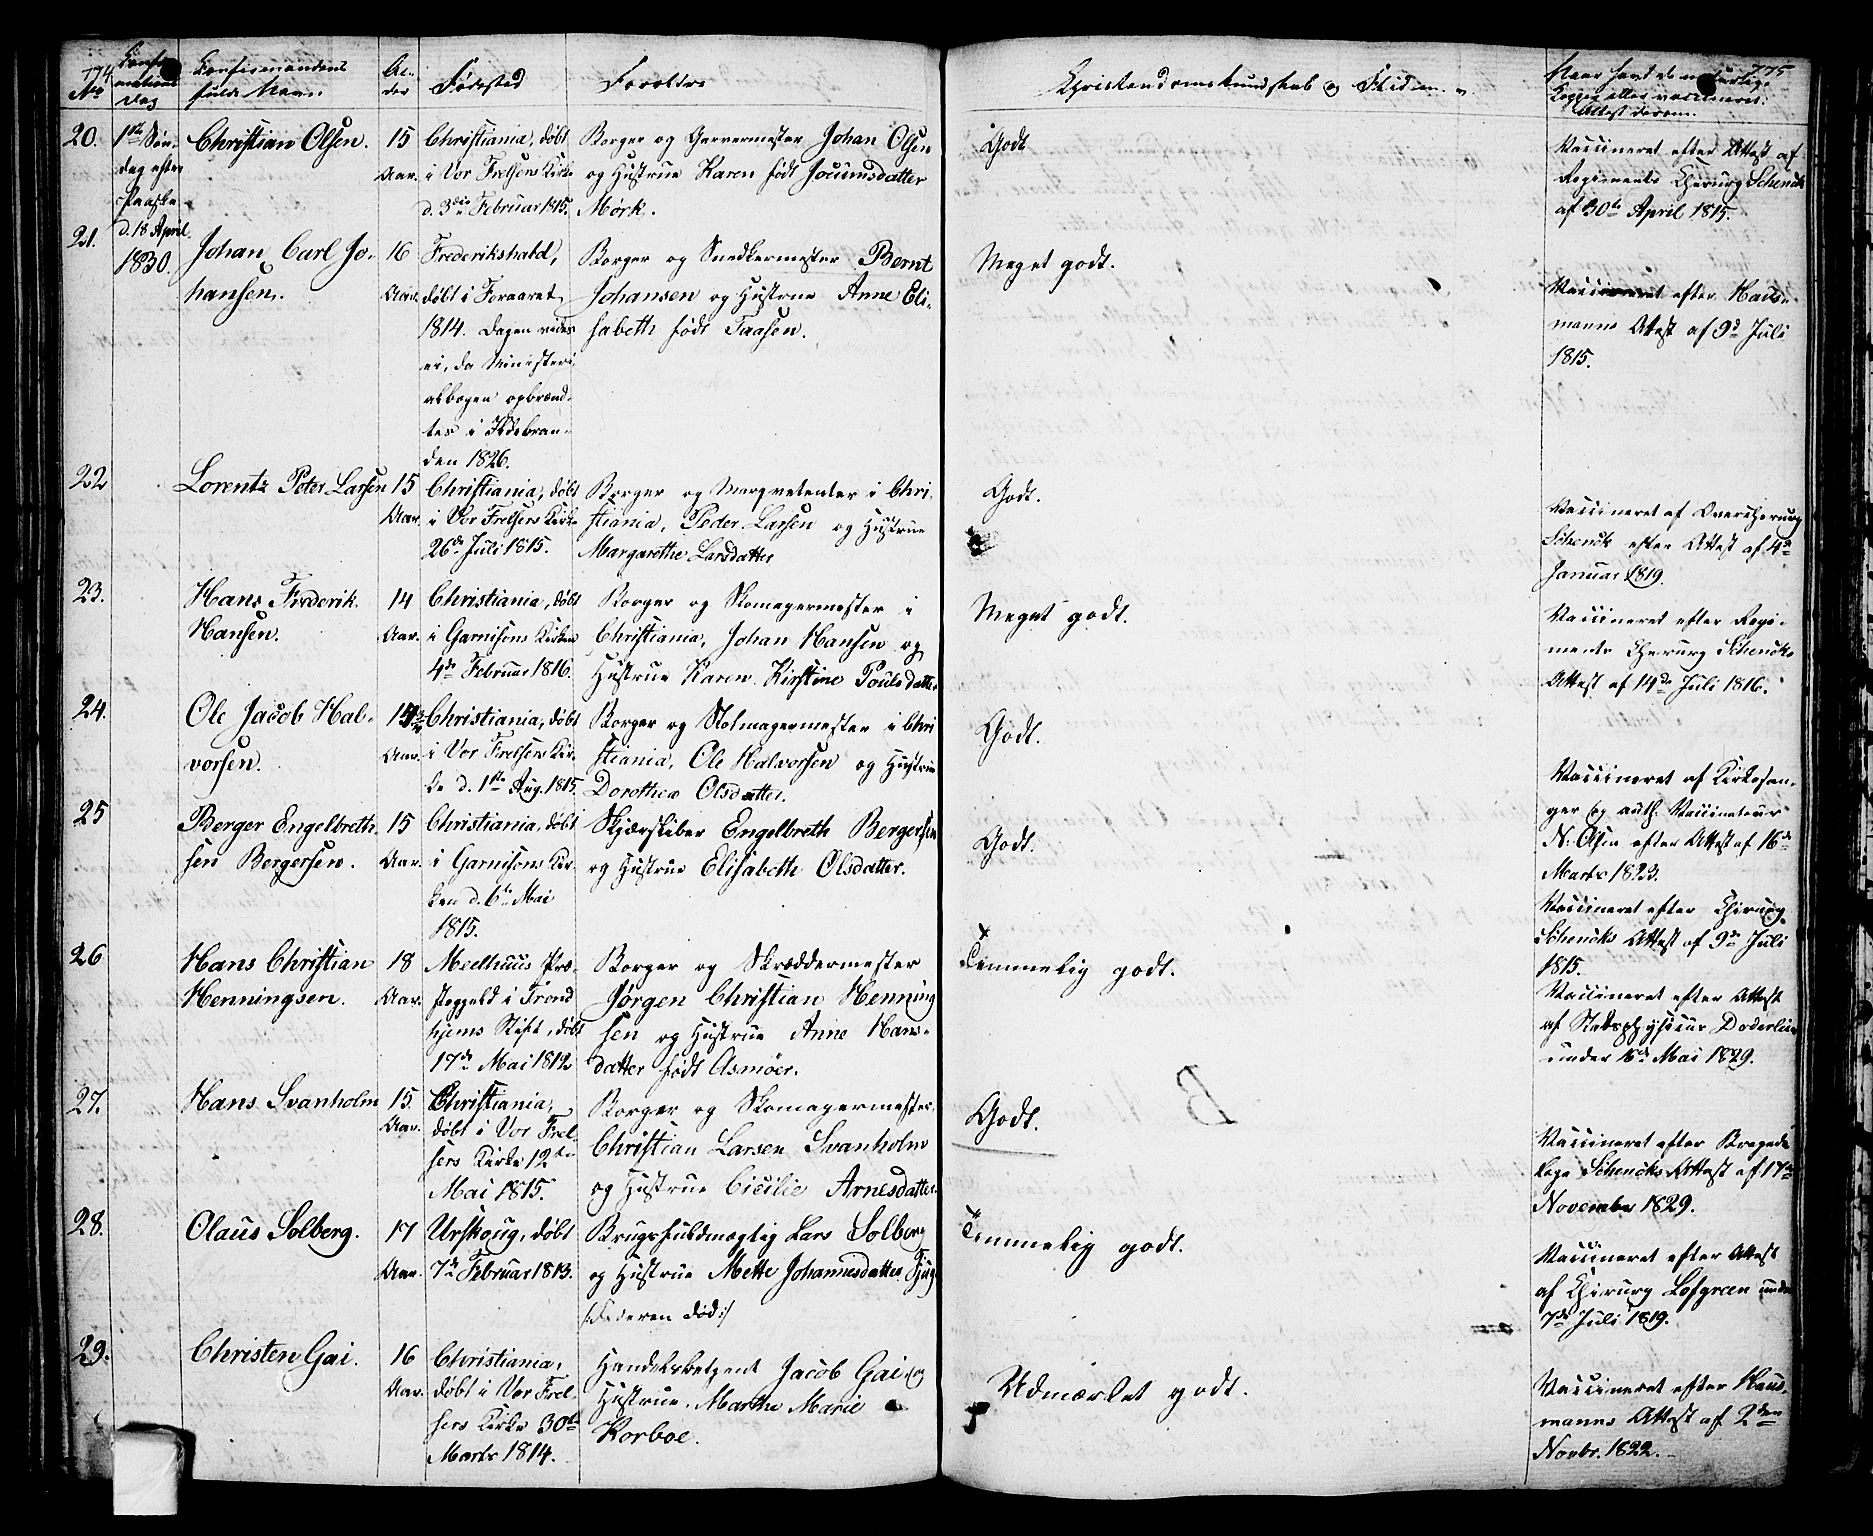 774
No
Confir-
mations
Dag
Confirmandens
fulde Navn.
Al-
der
Fødested
Forældre
Christendomskundskab og Flid
775
Naar havt de naturlige
Kopper eller vaccineret.
Attest derom.
20.
1ste Søn-
dag efter
Paaske
d. 18 April
1830.
Christian Olsen.
15
Aar.
Christiania, døbt
i Vor Frelsers Kirke
d. 3die Februar 1815.
Borger og Garvermester Johan Olsen
og Hustrue Karen født Jocumsdatter
Mørk.
Godt
Vaccineret efter Attest af
Regiments Chirurg Schenck
af 30te April 1815.
21.
Johan Carl Jo-
hansen.
16
Aar.
Frederikshald,
døbt i Foraaret
1814. Dagen vides
ei, da Ministeri-
albogen opbrænd-
tes i Ildebran-
den 1826.
Borger og Snedkermester Bernt
Johansen og Hustrue Anne Eli-
sabeth født Faasen.
Meget godt.
Vaccineret efter Haus-
manns Attest af 9de Juli
1815.
22
Lorentz Peter Larsen
15
Aar.
Christiania, døbt
i Vor Frelsers Kirke
26de Juli 1815.
Borger og Marqvetenter i Chri-
stiania, Peder Larsen og Hustrue
Margarethe Larsdatter
Godt.
Vaccineret af Overchirurg
Schenck efter Attest af 4de
Januar 1819.
23.
Hans Frederik
Hansen.
14
Aar.
Christiania, døbt
i Garnisons Kirken
4de Februar 1816.
Borger og Skomagermester i
Christiania, Johan Hansen og
Hustrue Karen Kirstine Poulsdatter
Meget godt.
Vaccineret efter Regi-
ments Chirurg Schencks
Attest af 14de Juli 1816.
24.
Ole Jacob Hal-
vorsen.
Aar.
Christiania, døbt
i Vor Frelsers Kir-
ke d. 1ste Aug. 1815.
Borger og Stolmagermester i Chri
stiania, Ole Halvorsen og Hustrue
Dorothea Olsdatter.
Godt.
Vaccineret af Kirkesan-
ger og auth. Vaccinateur
N. Olsen efter Attest af 16de
Marts 1823.
25
Berger Engelbreth-
sen Bergersen.
15
Aar.
Christiania, døbt
i Garnisons Kir-
ken d. 6te Mai
1815.
Skjærsliber Engelbreth Bergersen
og Hustrue Elisabeth Olsdatter.
Godt.
Vaccineret efter Chirurg
Schencks Attest af 9de Juli
1815.
26
Hans Christian
Henningsen.
18
Aar.
Meelhuus Præ-
stegjeld i Trond
hjems Stift, døbt
17de Mai 1812
Borger og Skræddermester
Jørgen Christian Henning
sen og Hustrue Anne Hans-
datter født Asmöer.
Temmelig godt.
Vaccineret efter Attest
af Stadsphysicus Døderlein
under 18de Mai 1829.
27.
Hans Svanholm
15.
Aar.
Christiania,
døbt i Vor Frel-
sers Kirke 12te
Mai 1815.
Borger og Skomagermester,
Christian Larsen Svanholm
og Hustrue Cicilie Arnesdatter.
Godt.
Vaccineret efter Brigade
læge Schencks Attest af 17de
November 1829.
28.
Claus Solberg.
17
Aar.
Urskoug, døbt
7de Februar 1813.
Brugsfuldmægtig Lars Solberg
og Hustrue Mette Johannesdatter Fjug
/: Faderen død:/
Temmelig godt.
Vaccineret efter Attest
af Chirurg Løfgreen under
7de Juli 1819.
29.
Christen Gai.
16
Aar.
Christiania,
døbt i Vor Frel-
sers Kirke 30te
Marts 1814.
Handelsbetjent Jacob Gai og
Hustrue, Marthe Marie
Korboe.
Udmærket godt.
Vaccineret efter Haus-
manns Attest af 2den
Novbr. 1822.